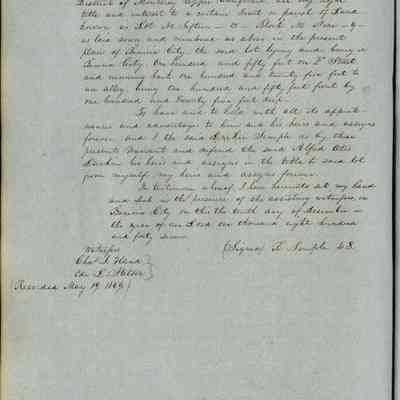 District of Monterey Upper California all my right
title and interest to a certain tract or parcel of Land
known as Lot No
as laid down and numbered as above in the present
plan of Benicia City. the said lot lying and being in
Benicia City. One hundred and fifty feet on Street
and running back one hundred and twenty five feet to
an alley being one hundred and fifty feet front by
one hundred and twenty five feet deep.
To have and to hold with all its appurte
nances and advantages to him and his heirs and assigns
forever and I the said Semple do by these
presents Warrant and defend the said Alfred
his heirs and assigns in the title to said lot
from myself my heirs and assigns forever.
In testimony whereof I have hereunto set my hand
and seal in the presence of the assisting witnesses, in
Benicia City on this the tenth day of December
the year of our Lord one thousand eight hundred
and forty seven
Witnesses (Signed) R. Semple
Chas
(Recorded May 19 1849)